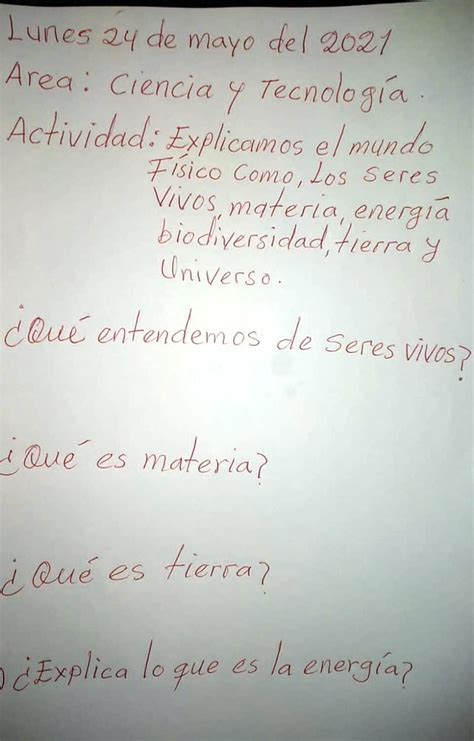 Lunes 24 de mayo del 2021
Area: Ciencia y Tecnología.
Actividad: Explicamos el mundo
Físico Como, Los seres
Vivos, materia, energía
biodiversidad, tierra y
Universo.
¿Qué entendemos de seres vivos?
¿Qué es materia?
¿Qué es tierra?
¿Explica lo que es la energía?